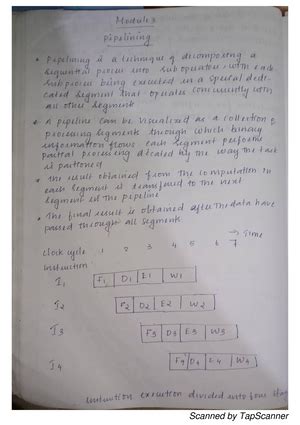 Module 3
Pipelining
• Pipelining is a technique of decomposing a
sequential process into suboperations, with each
subprocess being executed in a special dedi-
cated segment that operates concurrently with
all other segment
• A pipeline can be visualized as a collection of
processing segments through which binary
information flows each segment performs
partial processing dictated by the way the task
is partitioned
• The result obtained from the computation in
each segment is transfered to the next
segment in the pipeline
• The final result is obtained after the data have
passed through all segments
→ Time
Clock cycle 1 2 3 4 5 6 7
Instruction
I1 F1 D1 E1 W1
I2 F2 D2 E2 W2
I3 F3 D3 E3 W3
I4 F4 D4 E4 W4
Instruction execution divided into four
Scanned by TapScanner